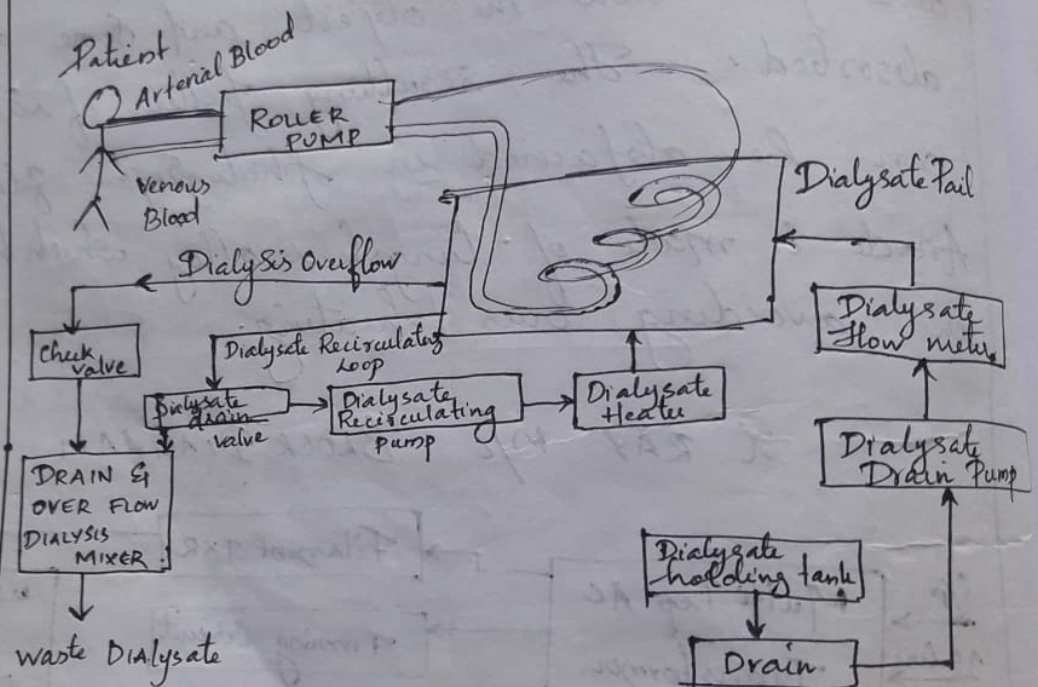 Patient
Arterial Blood
ROLLER
PUMP
Venous
Blood
Dialysate Pail
Dialysis Overflow
Check
valve
Dialysate Recirculating
Loop
Dialysate
drain
valve
Dialysate
Recirculating
pump
Dialysate
Heater
Dialysate
flow meter
Dialysate
Drain Pump
DRAIN &
OVER FLOW
DIALYSIS
MIXER
Dialysate
holding tank
Drain
Waste Dialysate